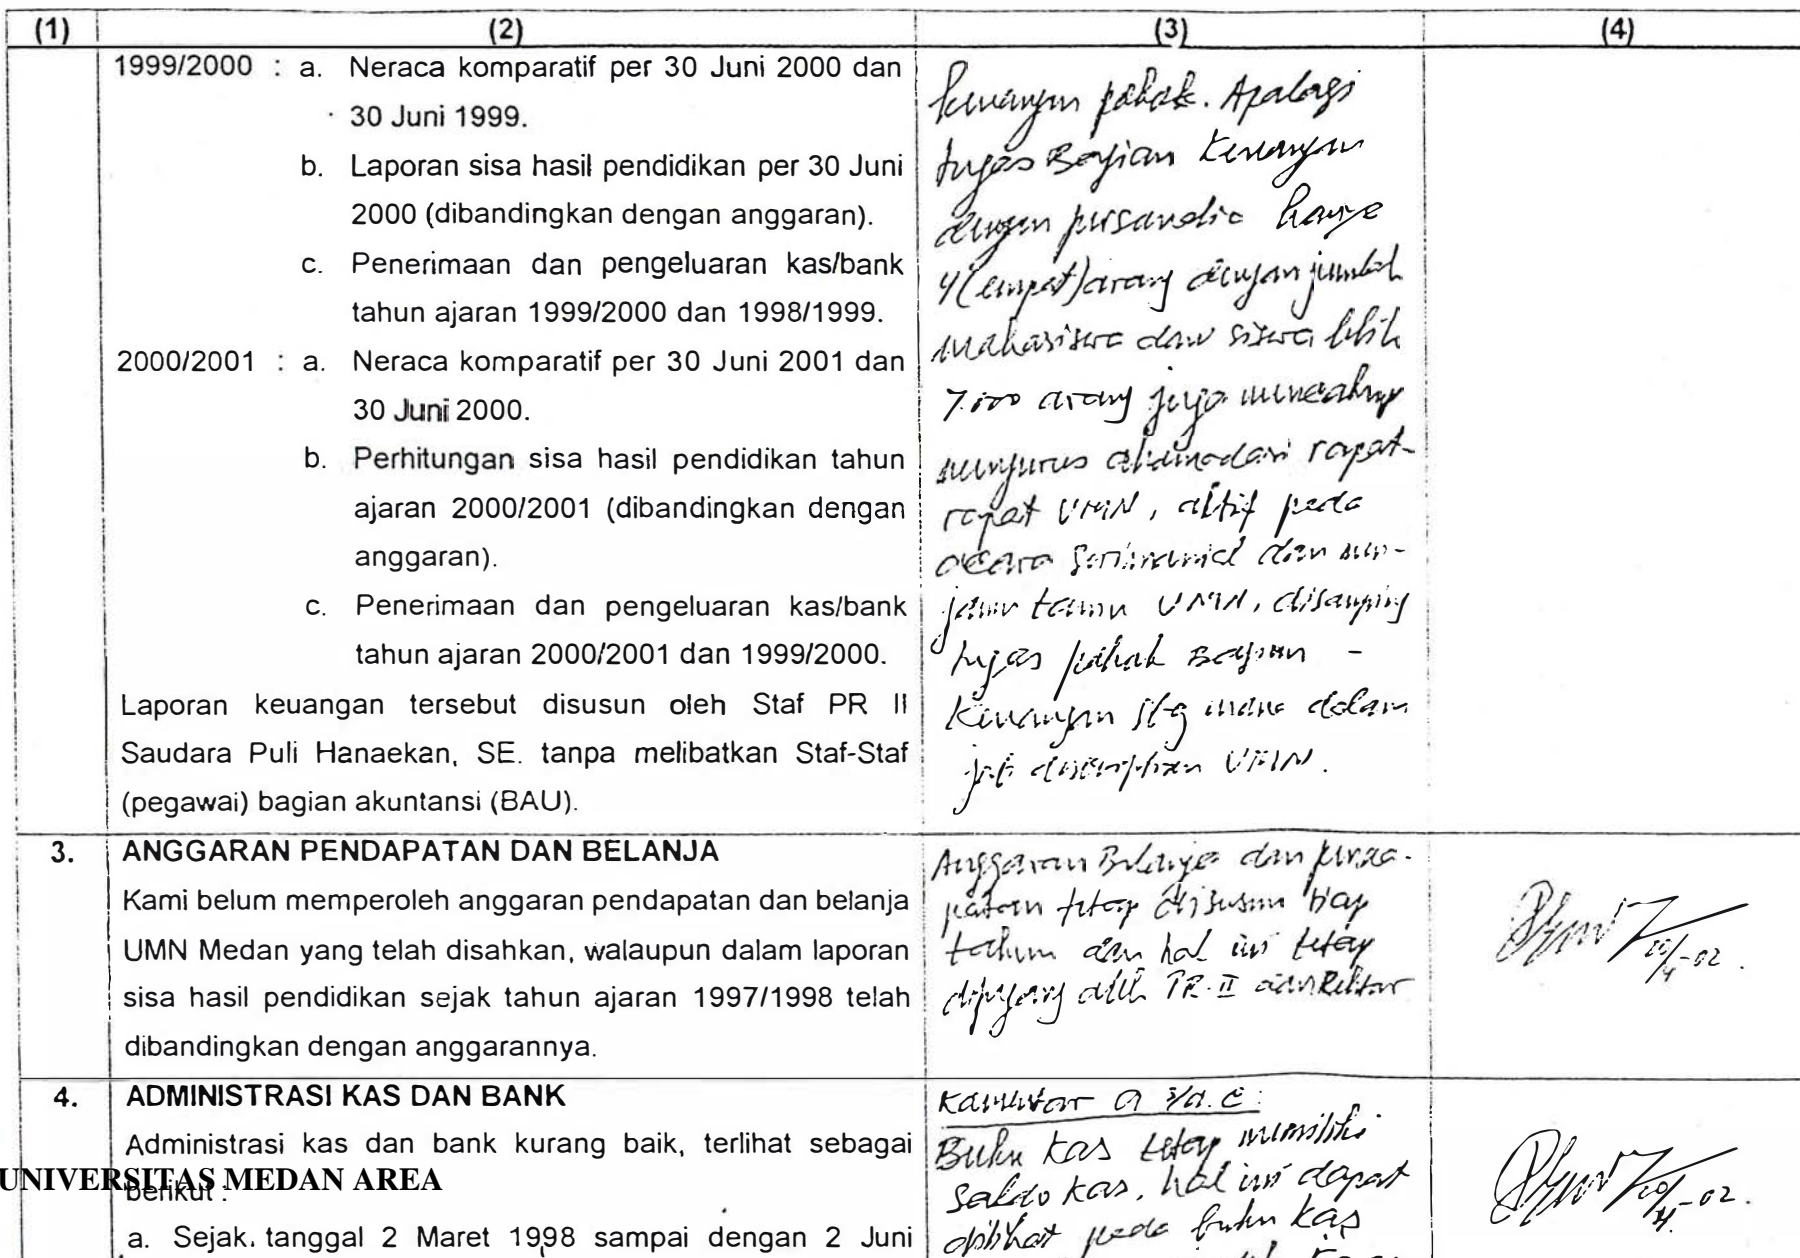 (1) (2) (3) (4)
1999/2000 : a. Neraca komparatif per 30 Juni 2000 dan
30 Juni 1999.
b. Laporan sisa hasil pendidikan per 30 Juni
2000 (dibandingkan dengan anggaran).
c. Penerimaan dan pengeluaran kas/bank
tahun ajaran 1999/2000 dan 1998/1999.
2000/2001 : a. Neraca komparatif per 30 Juni 2001 dan
30 Juni 2000.
b. Perhitungan sisa hasil pendidikan tahun
ajaran 2000/2001 (dibandingkan dengan
anggaran).
c. Penerimaan dan pengeluaran kas/bank
tahun ajaran 2000/2001 dan 1999/2000.
Laporan keuangan tersebut disusun oleh Staf PR II
Saudara Puli Hanaekan, SE. tanpa melibatkan Staf-Staf
(pegawai) bagian akuntansi (BAU).
keuangan pokok. Apalagi
tugas Bagian Keuangan
dengan personalia hanya
4 (empat) orang dengan jumlah
mahasiswa dan siswa lebih
7.000 orang juga
mengurus dari rapat-
rapat UMN, aktif pada
acara dan men-
jamu tamu UMN, disamping
tugas pokok Bagian
Keuangan sbg mana dalam
UMN.
3. ANGGARAN PENDAPATAN DAN BELANJA
Kami belum memperoleh anggaran pendapatan dan belanja
UMN Medan yang telah disahkan, walaupun dalam laporan
sisa hasil pendidikan sejak tahun ajaran 1997/1998 telah
dibandingkan dengan anggarannya.
Anggaran Belanja dan penda-
patan tetap disusun tiap
tahun dan hal ini tetap
dipegang oleh PR-II dan Rektor
10/4-02.
4. ADMINISTRASI KAS DAN BANK
Administrasi kas dan bank kurang baik, terlihat sebagai
berikut :
a. Sejak tanggal 2 Maret 1998 sampai dengan 2 Juni
Komentar a s/d. c :
Buku Kas tetap memiliki
saldo kas, hal ini dapat
dilihat pada buku kas
10/4-02.
UNIVERSITAS MEDAN AREA